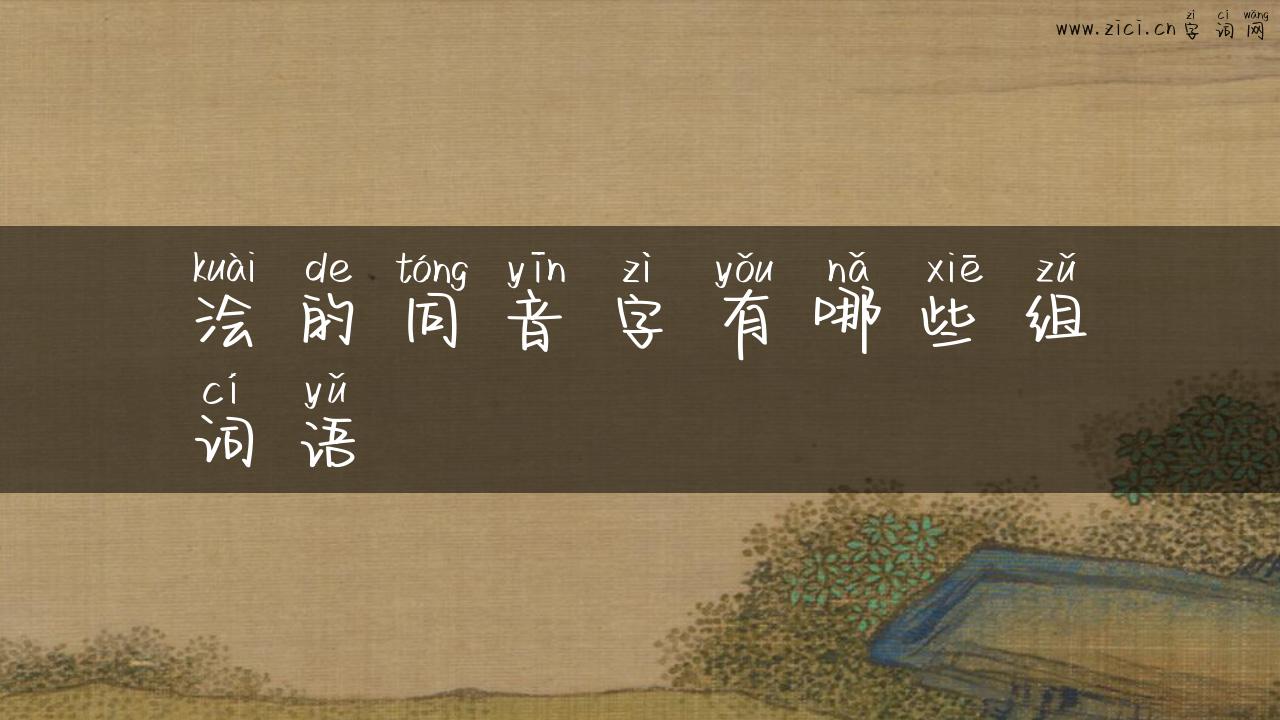 zì cí wǎng
www.zici.cn 字 词 网
kuài de tóng yīn zì yǒu nǎ xiē zǔ
浍 的 同 音 字 有 哪 些 组
cí yǔ
词 语